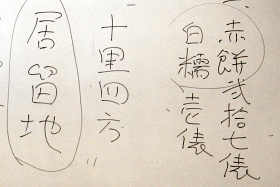 一、赤餅弐拾七俵
白糯壱俵
十里四方
居留地